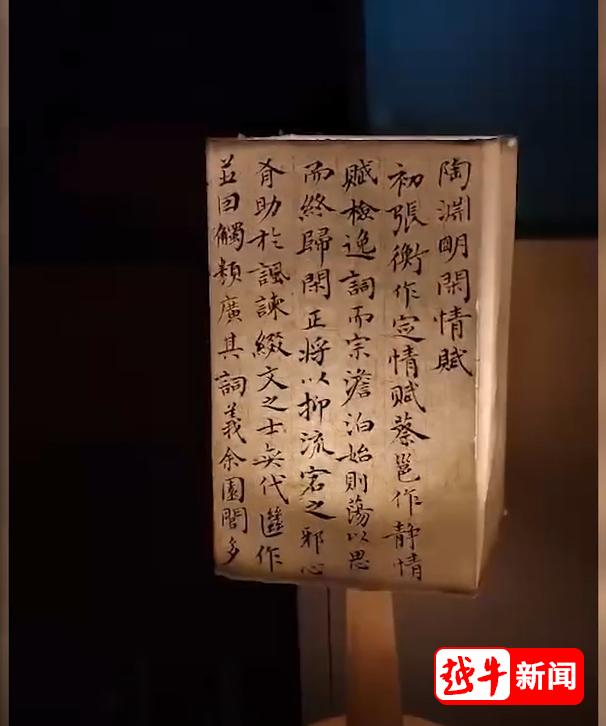 陶淵明閑情賦
初張衡作定情賦蔡邕作静情
賦檢逸詞而宗澹泊始則蕩以思
而終歸閑正將以抑流宕之邪心
有助於諷諫綴文之士奕代遥作
並因觸類廣其詞義余園閭多
越牛新闻